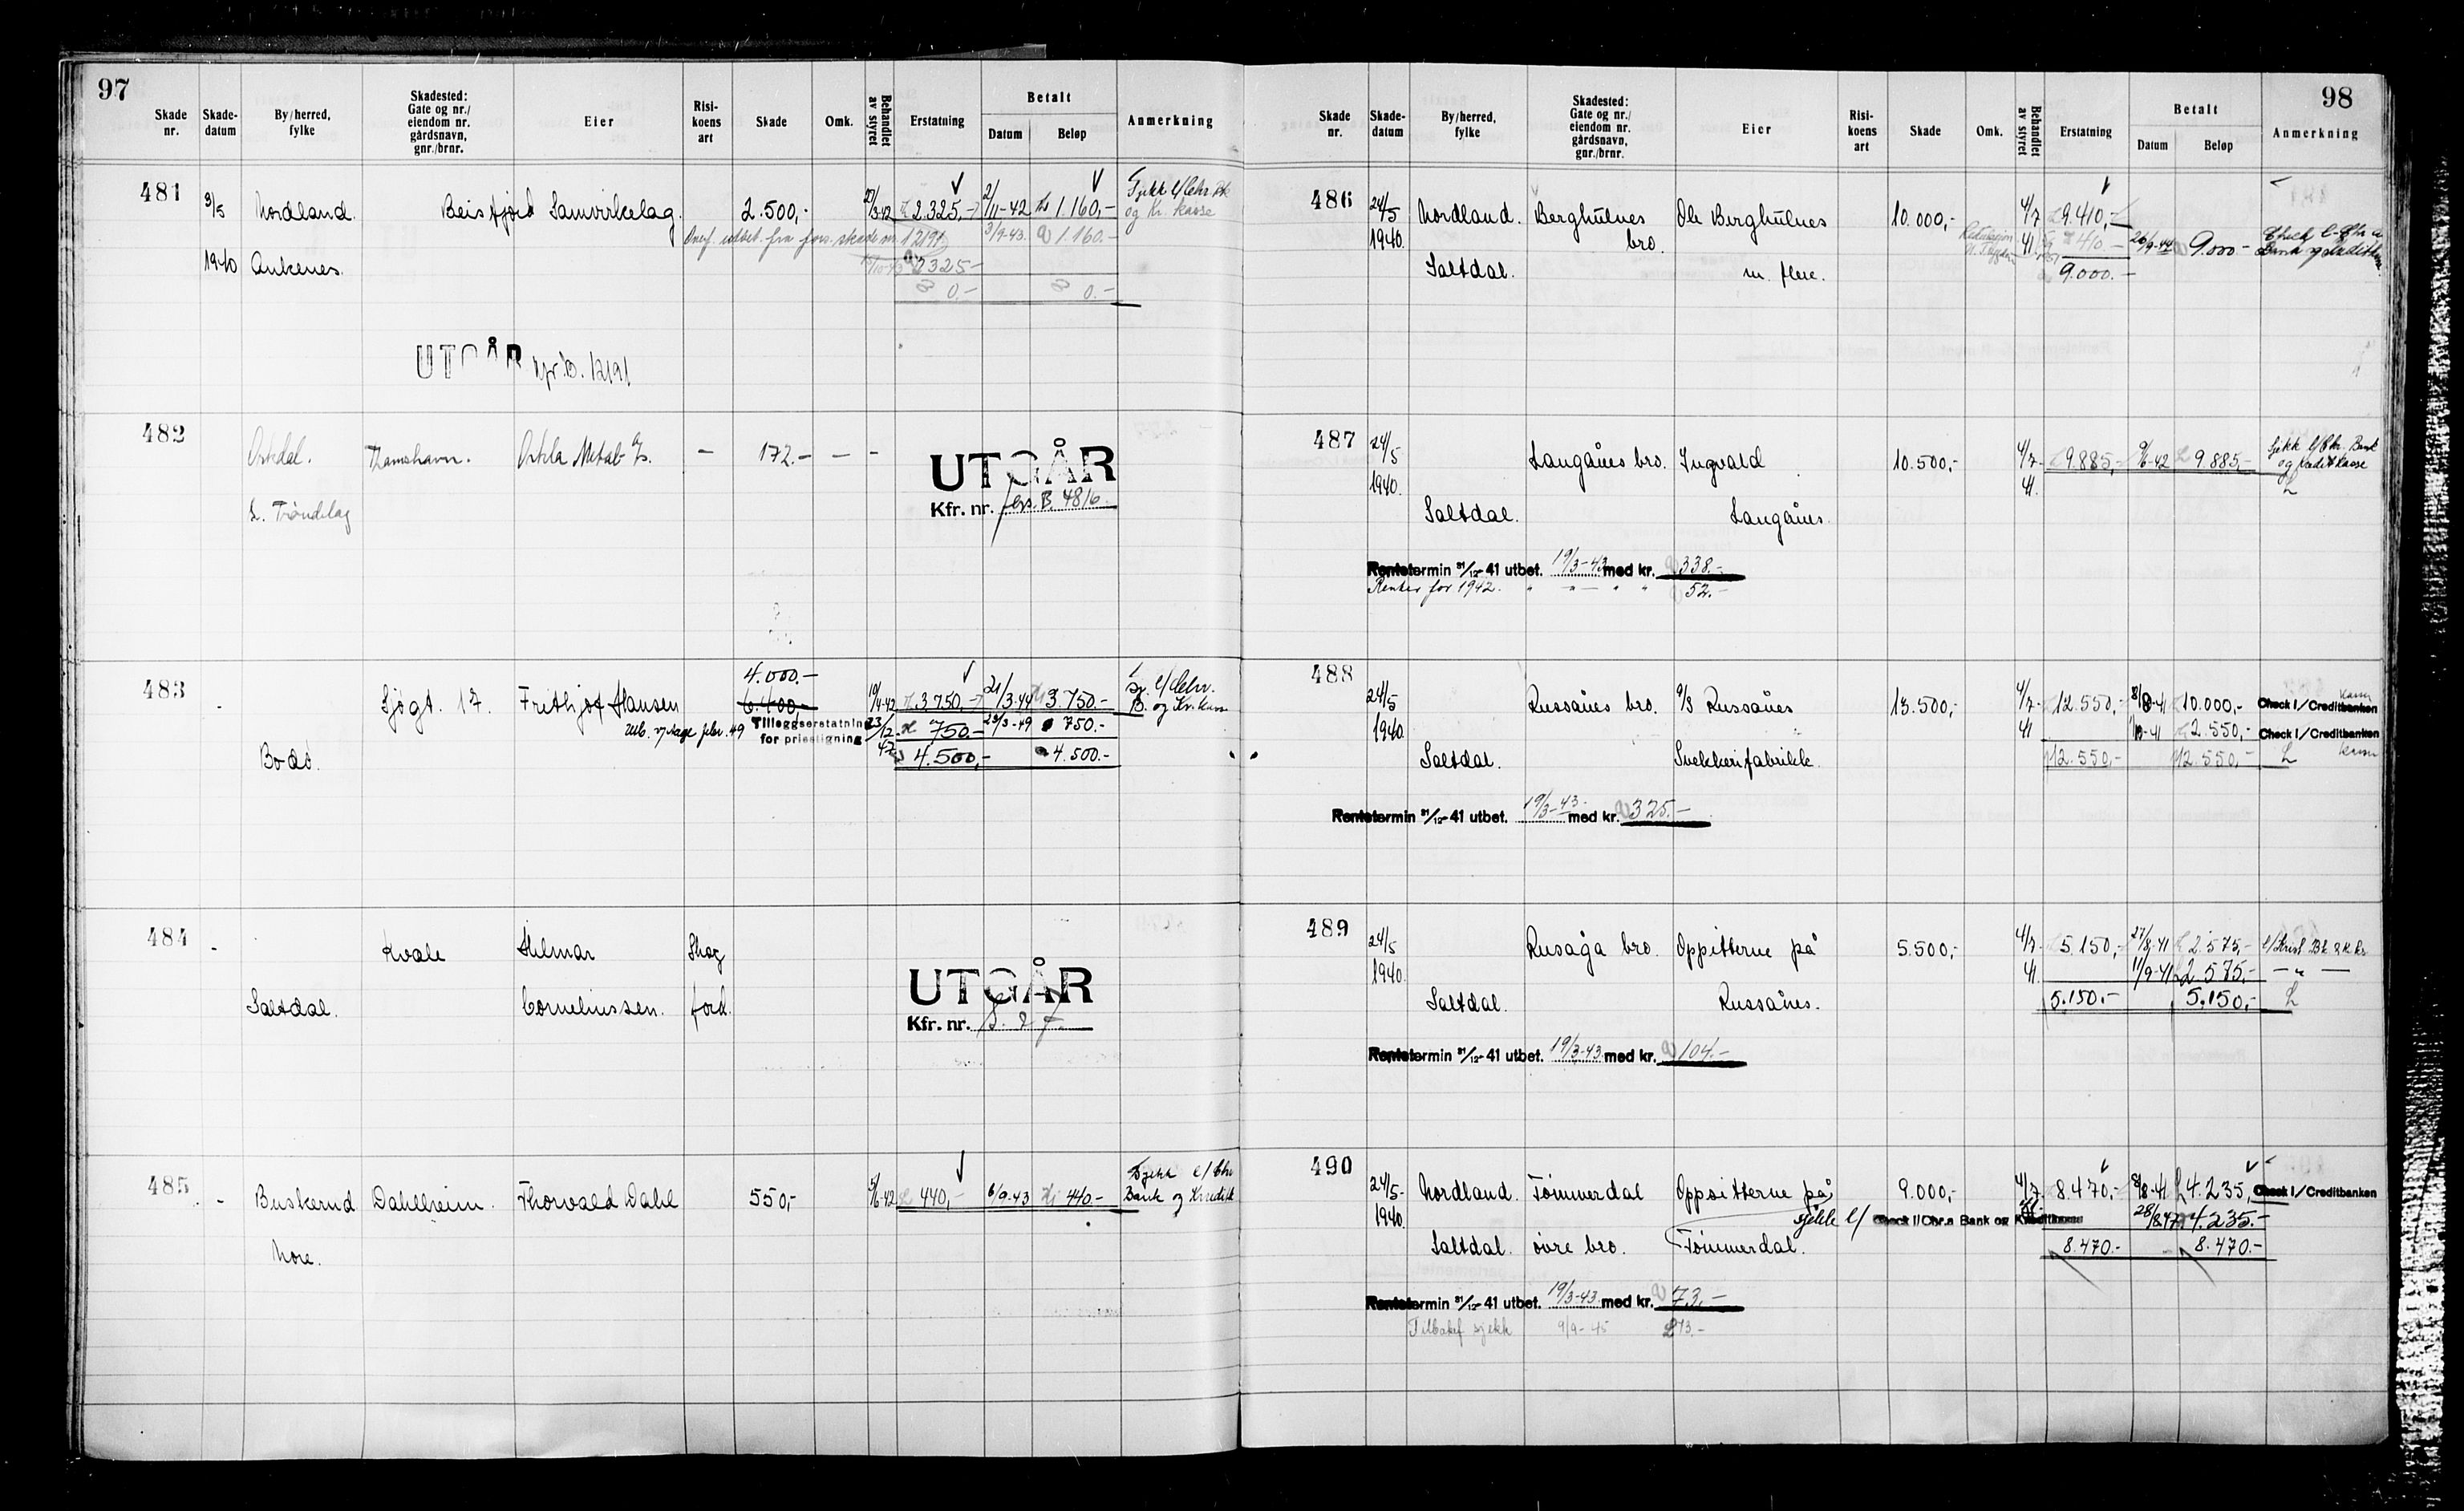 97
Skade nr. Skade- datum By/herred, fylke Skadested: Gate og nr./ eiendom nr. gårdsnavn, gnr./brnr. Eier Risi- koens art Skade Omk. Behandlet av styret Erstatning Betalt Datum Beløp Anmerkning
481 9/5 Nordland. Beisfjord Samvirkelag. 2.500,- 2.325,- 2/11-42 1.160,-
og Kr. kasse
utbet. fra skade nr. 12191 3/9-43. 1.160.-
1940 Ankenes. 2325-
0.- 0.-
UTGÅR 12191
482 Orkdal. Thamshavn. Orkla Metal A/s. - 172.- - - UTGÅR
Kfr. nr. B. 4816.
S. Trøndelag
483 - Sjøgt. 17. Frithjof Hansen 4.000.-
6.400,- 19/4-42 3.750,- 21/3.44 3.750.- B. og Kr.kasse
49 Tilleggserstatning for prisstigning 23/12 47 750.- 23/3-49 750.-
Bodø. 4.500,- 4.500.-
484 - Kvale Hilmar Skog UTGÅR
Saltdal. Corneliussen. fork. Kfr. nr.
485 - Buskerud Dahlheim. Thorvald Dahl 550,- 5/6-42 440,- 6/9-43 440-
Bank og Kreditk
Nore.
98
Skade nr. Skade- datum By/herred, fylke Skadested: Gate og nr./ eiendom nr. gårdsnavn, gnr./brnr. Eier Risi- koens art Skade Omk. Behandlet av styret Erstatning Betalt Datum Beløp Anmerkning
486 24/5 Nordland. Berghulnes Ole Berghulnes 10.000,- 4/7 9.410,-
1940. bro. 41 410.- 26/9-44 9.000-
Saltdal. m. flere. 9.000.-
487 24/5 Langånes bro. Ingvald 10.500,- 4/7- 9.885,- 9/6-42 9.885,- Sjekk l/Chr. Bank og Kreditkasse
1940. 41.
Saltdal. Langånes.
Rentetermin 31/12-41 utbet. 19/3-43 med kr. 338.-
Renter for 1942. " - " - " " 52.-
488 24/5 Russånes bro. A/S Russånes 13.500,- 4/7- 12.550,- 8/8-41 10.000,- Check l/Creditbanken
1940. 41 2.550,- Check l/Creditbanken
Saltdal. Snekkerifabrikk. 12.550,- 12.550,-
Rentetermin 31/12-41 utbet. 19/3-43- med kr. 325.-
489 24/5 Rusåga bro. Oppsitterne på 5.500,- 4/7- 5.150,- 27/8-41 2.575,-
1940. 41. 11/9-41 2.575,- - " -
Saltdal. Russånes. 5.150.- 5.150,-
Rentetermin 31/12-41 utbet. 19/3-43. med kr. 104.-
490 24/5- Nordland. Tømmerdal Oppsitterne på 9.000,- 4/7. 8.470,- 8/8-41 4.235, Check l/Creditbanken
1940. sjekk l/ Check l/Chr.a Bank og Kreditkasse 28/8.47 4.235.-
Saltdal. øvre bro. Tømmerdal. 8.470.- 8.470.-
Rentetermin 31/12-41 utbet. 19/3-43. med kr. 73.-
Tilbakef sjekk 9/9-45 73,-